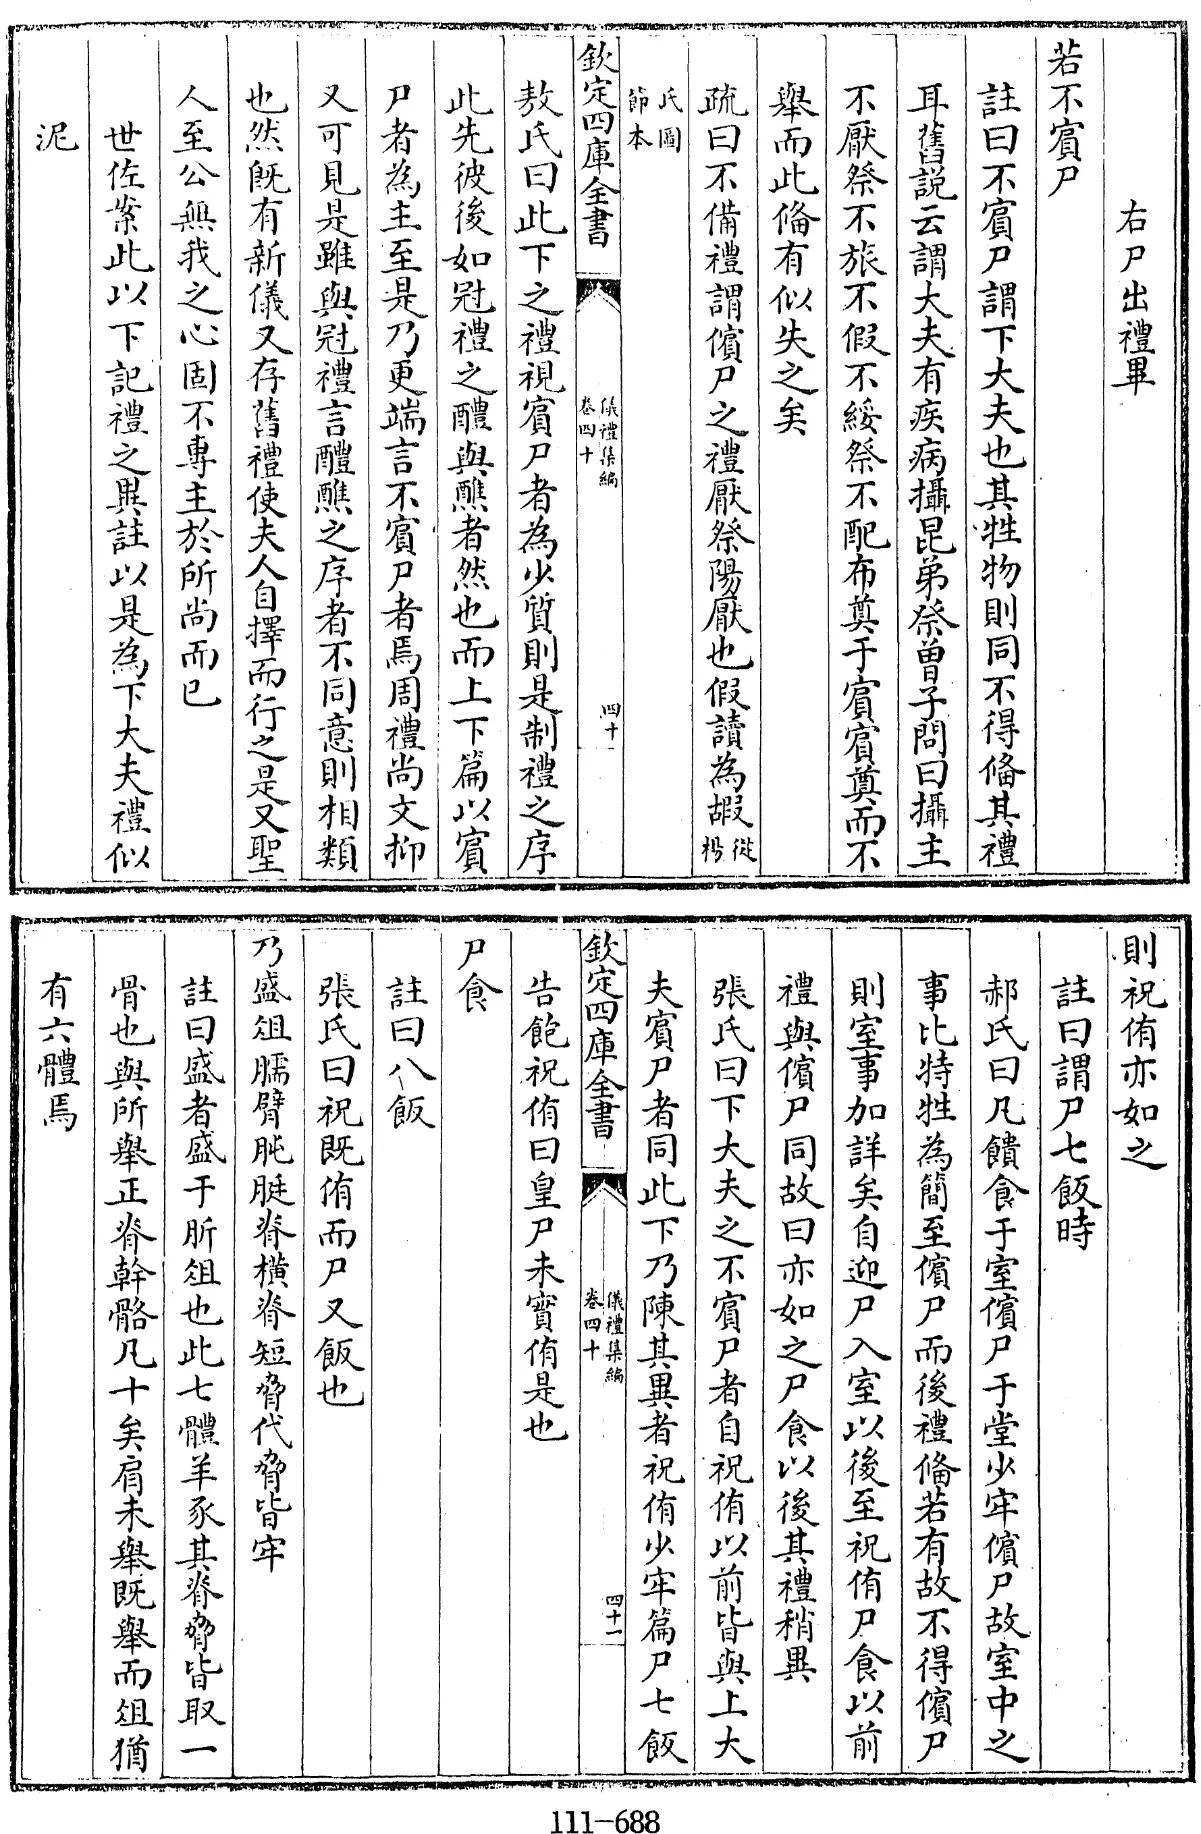 右尸出禮畢
若不賓尸
註曰不賓尸謂下大夫也其牲物則同不得備其禮
耳舊説云謂大夫有疾病攝昆弟祭曾子問曰攝主
不厭祭不旅不假不綏祭不配布奠于賓賓奠而不
舉而此備有似失之矣
疏曰不備禮謂儐尸之禮厭祭陽厭也假讀為嘏從楊
氏圖
節本
欽定四庫全書
儀禮集編
卷四十
四十
敖氏曰此下之禮視賓尸者為少質則是制禮之序
此先彼後如冠禮之醴與醮者然也而上下篇以賓
尸者為主至是乃更端言不賓尸者焉周禮尚文抑
又可見是雖與冠禮言醴醮之序者不同意則相類
也然既有新儀又存舊禮使夫人自擇而行之是又聖
人至公無我之心固不專主於所尚而已
世佐案此以下記禮之異註以是為下大夫禮似
泥
則祝侑亦如之
註曰謂尸七飯時
郝氏曰凡饋食于室儐尸于堂少牢儐尸故室中之
事比特牲為簡至儐尸而後禮備若有故不得儐尸
則室事加詳矣自迎尸入室以後至祝侑尸食以前
禮與儐尸同故曰亦如之尸食以後其禮稍異
張氏曰下大夫之不賓尸者自祝侑以前皆與上大
夫賓尸者同此下乃陳其異者祝侑少牢篇尸七飯
欽定四庫全書
儀禮集編
卷四十
四十一
告飽祝侑曰皇尸未實侑是也
尸食
註曰八飯
張氏曰祝既侑而尸又飯也
乃盛俎臑臂肫脡脊橫脊短脅代脅皆牢
註曰盛者盛于肵俎也此七體羊豕其脊脅皆取一
骨也與所舉正脊幹骼凡十矣肩未舉既舉而俎猶
有六體焉
111-688